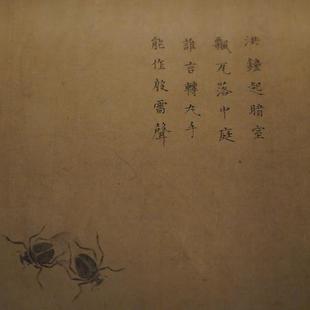 洪鐘起暗室
飄瓦落中庭
誰言轉丸手
能作殷雷聲